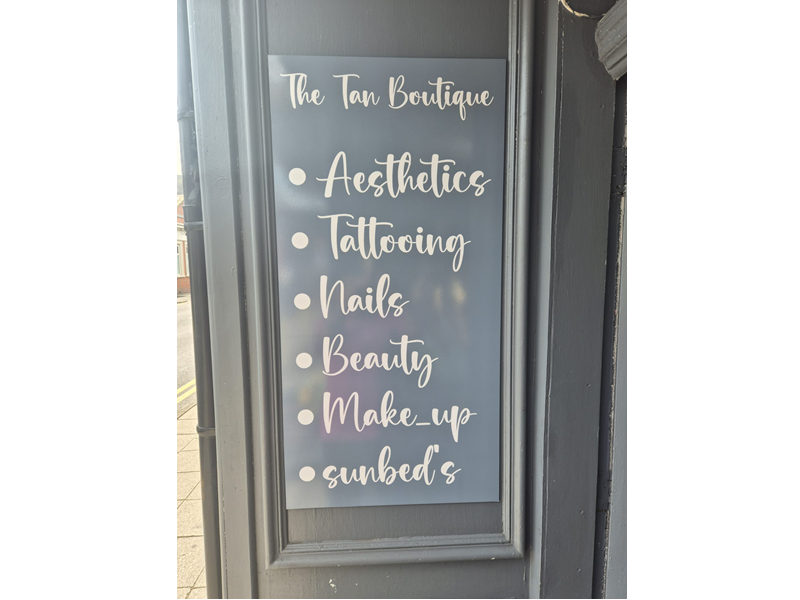 The Tan Boutique
• Aesthetics
• Tattooing
• Nails
• Beauty
• Make_up
• sunbed's